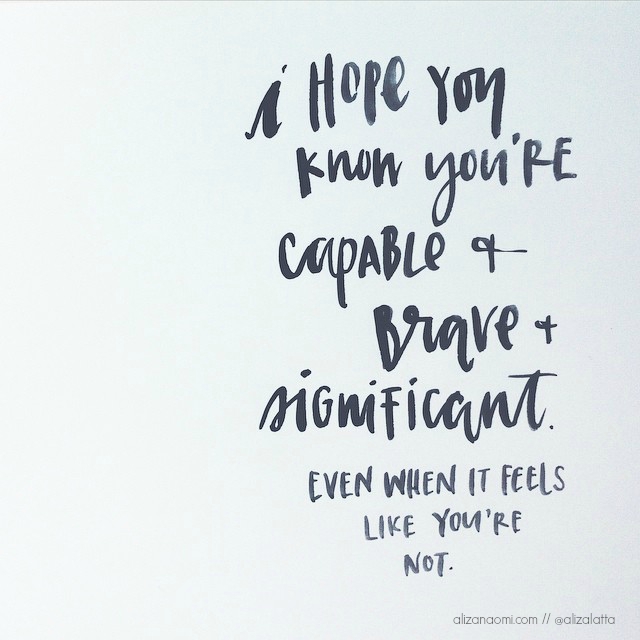 i HOPE YOU
KNOW YOU'RE
CAPABLE +
BRAVE +
SIGNIFICANT.
EVEN WHEN IT FEELS
LIKE YOU'RE
NOT.
alizanaomi.com // @alizalatta